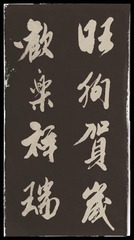 旺狗賀歲
歡樂祥瑞